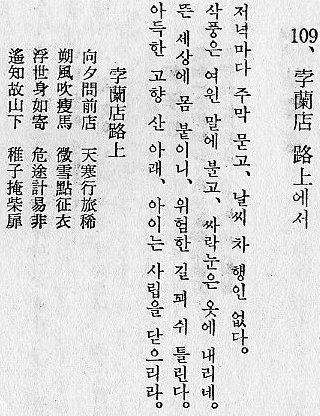 109、孛蘭店 路上에서
저녁마다 주막 묻고、날씨 차 행인 없다。
삭풍은 여윈 말에 불고、싸락눈은 옷에 내리네。
뜬 세상에 몸 붙이니、위험한 길 꾀 쉬 틀린다。
아득한 고향 산 아래、아이는 사립을 닫으리라。
孛蘭店路上
向夕問前店 天寒行旅稀
朔風吹瘦馬 微雪點征衣
浮世身如寄 危途計易非
遙知故山下 稚子掩柴扉